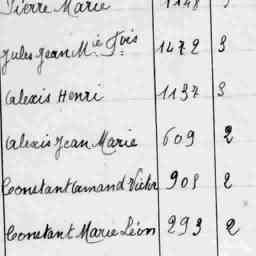 Pierre Marie 1148 3
Jules Jean Mie Fois 1472 3
Alexis Henri 1137 3
Alexis Jean Marie 609 2
Constant Amand Victor 905 2
Constant Marie Léon 293 2